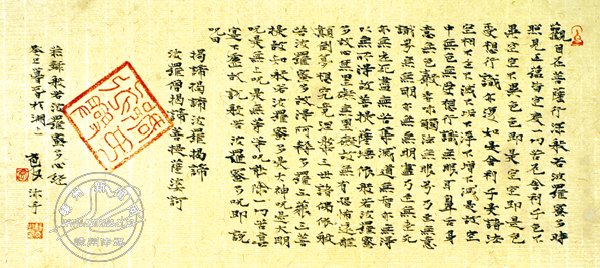 觀自在菩薩行深般若波羅蜜多時
照見五蘊皆空度一切苦厄舍利子色不
異空空不異色色即是空空即是色
受想行識亦復如是舍利子是諸法
空相不生不滅不垢不淨不增不減是故空
中無色無受想行識無眼耳鼻舌身
意無色聲香味觸法無眼界乃至無意
識界無無明亦無無明盡乃至無老死
亦無老死盡無苦集滅道無智亦無得
以無所得故菩提薩埵依般若波羅蜜
多故心無罣礙無罣礙故無有恐怖遠離
顛倒夢想究竟涅槃三世諸佛依般
若波羅蜜多故得阿耨多羅三藐三菩
提故知般若波羅蜜多是大神咒是大明
咒是無上咒是無等等咒能除一切苦真
實不虛故說般若波羅蜜多咒即說
咒曰
揭諦揭諦波羅揭諦
波羅僧揭諦菩提薩婆訶
恭錄般若波羅蜜多心經
癸巳暮春於湖上